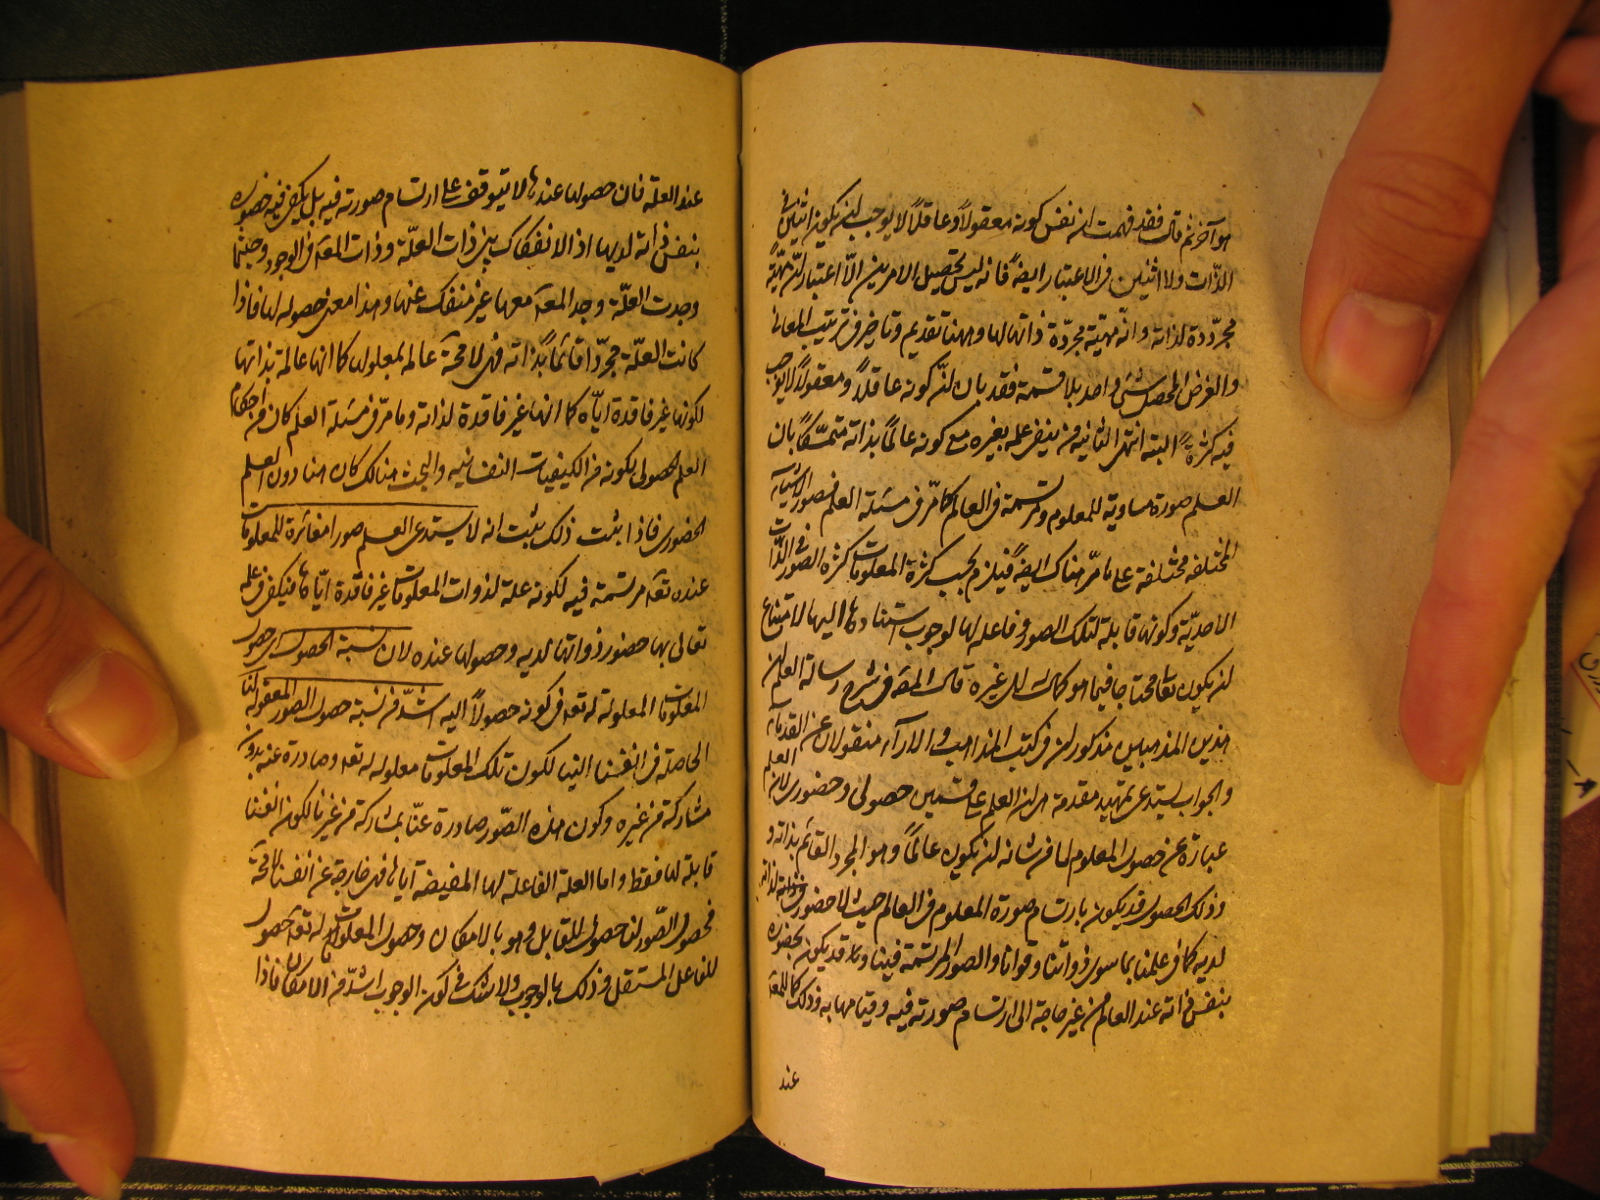 هو آخر ثم قال فقد فهمت ان نفس كونه معقولاً وعاقلاً لا يوجب ان يكون اثنين في
الذات ولا اثنين في الاعتبار ايضاً فانه ليس تحصيل الامرين الا اعتبار ان مهيّة
مجرّدة لذاته وانّه مهيّة مجرّدة ذاتها لها وههنا تقديم وتاخير في ترتيب المعاني
والغرض المحصل شئ واحد بلا قسمة فقد بان انّ كونه عاقلاً ومعقولاً لا يوجب
فيه كثرةً البتة انتهى الثانية من ينفي علمه بغيره مع كونه عالماً بذاته متمسّكاً بان
العلم صورة مساوية للمعلوم مرتسمة في العالم كما مرّ في مسئلة العلم فصور الاشياء
المختلفة مختلفة على ما مرّ هناك ايضاً فيلزم بحسب كثرة المعلومات كثرة الصور في الذات
الاحديّة وكونها قابلة لتلك الصور وفاعله لها لوجوب استنادها اليها لامتناع
ان يكون تعالى محتاجا فيما هو كمال الى غيره قال المص في شرح رسالة العلم ان
هذين المذهبين مذكوران في كتب المذاهب والاراء منقولان عن القدماء
والجواب يستدعي تمهيد مقدمة هي ان العلم على قسمين حصولي وحضوري لان العلم
عبارة عن حصول المعلوم لما من شانه ان يكون عالماً وهو المجرد القائم بذاته و
وذلك الحصول قد يكون بارتسام صورة المعلوم في العالم حيث لا حضور لذاته
لديه كما في علمنا بما سوى ذواتنا وقوانا والصور المرتسمة فينا وقد يكون بحضوره
بنفس ذاته عند العالم من غير حاجة الى ارتسام صورته فيه وقيامها به وذلك كالمعلول
عند
عند العلة فان حصولها عندها لا يتوقف على ارتسام صورته فيه بل يكفي فيه حضوره
بنفس ذاته لديها اذ لا انفكاك بين ذات العلّة وذات المعلول في الوجود وحيثما
وجدت العلّة وجد المعلول معها غير منفك عنها وهذا معنى حصوله لها فاذا
كانت العلّة مجرّدا قائماً بذاته فهي لا محالة عالم لمعلولها كما انها عالمة بذاتها
لكونها غير فاقدة ايّاه كما انها غير فاقدة لذاته وما مرّ في مسئلة العلم كان من احكام
العلم الحصولي لكونه من الكيفيات النفسانيه والبحث هنالك كان هنا دون العلم
الحضوري فاذا ثبت ذلك يثبت انه لا يستدعي العلم صورا مغائرة للمعلومات
عنده تعالى مرتسمة فيه لكونه علة لذوات المعلومات غير فاقدة ايّاها فيكفي في علمه
تعالى بها حضور ذواتها لديه وحصولها عنده لان نسبة الحصول الى حصول
المعلومات المعلولة له تعالى في كونه حصولاً اليه اشدّ من نسبة حصول الصور المعقولة لنا
الحاصلة في انفسنا الينا لكون تلك المعلومات معلوله له تعالى وصادرة عنه بدون
مشاركة من غيره وكون هذه الصّور صادرة عنّا بمشاركة من غيرنا لكون انفسنا
قابلة لها فقط واما العلة الفاعلة لها المفيضه اياها فهي خارجة عن انفسنا لا محالة
فحصول الصّور لنا حصول للقابل وهو بالامكان وحصول المعلومات له تعالى حصول
للفاعل المستقل وذلك بالوجوب ولا شك في كون الوجوب اشدّ من الامكان فاذا